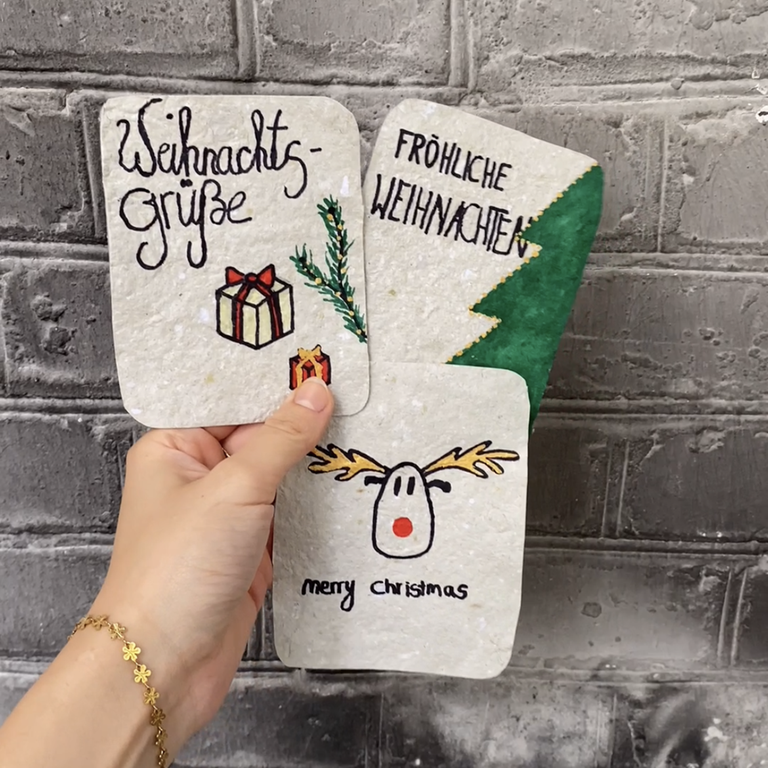 Weihnachts-
grüße
FRÖHLICHE
WEIHNACHTEN
merry christmas